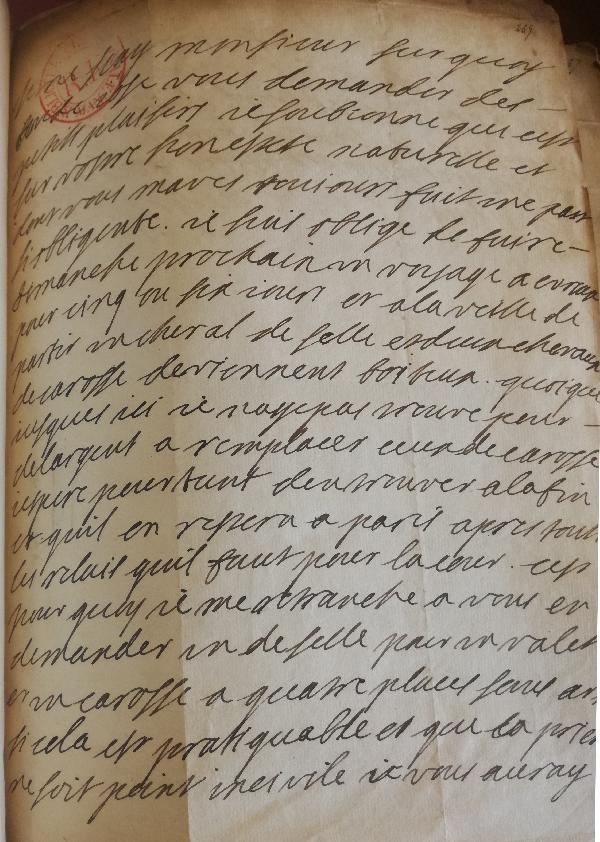 269
monsieur sur quoy
vous demander des
petits plaisirs je soubconne que cest
sur vostre honestete naturelle et
dont vous maves tousiours fait me part
si obligente. ie suis oblige de faire
dimanche prochain un voyage a evreux
pour cinq ou six iours et a la veille de
partir un cheval de selle et deux chevaux
de carosse deviennent boiteux. quoique
iusques ici ie naye pas trouve pour
de largent a remplacer ceux de carosse
iespere pourtant den trouver a la fin
et quil en restera a paris apres tous
les relais quil faut pour la cour. cest
pour quoy ie me retranche a vous en
demander un de selle pour un valet
et un carosse a quatre places sans
si cela est pratiquable et que la priere
ne soit point incivile ie vous auray